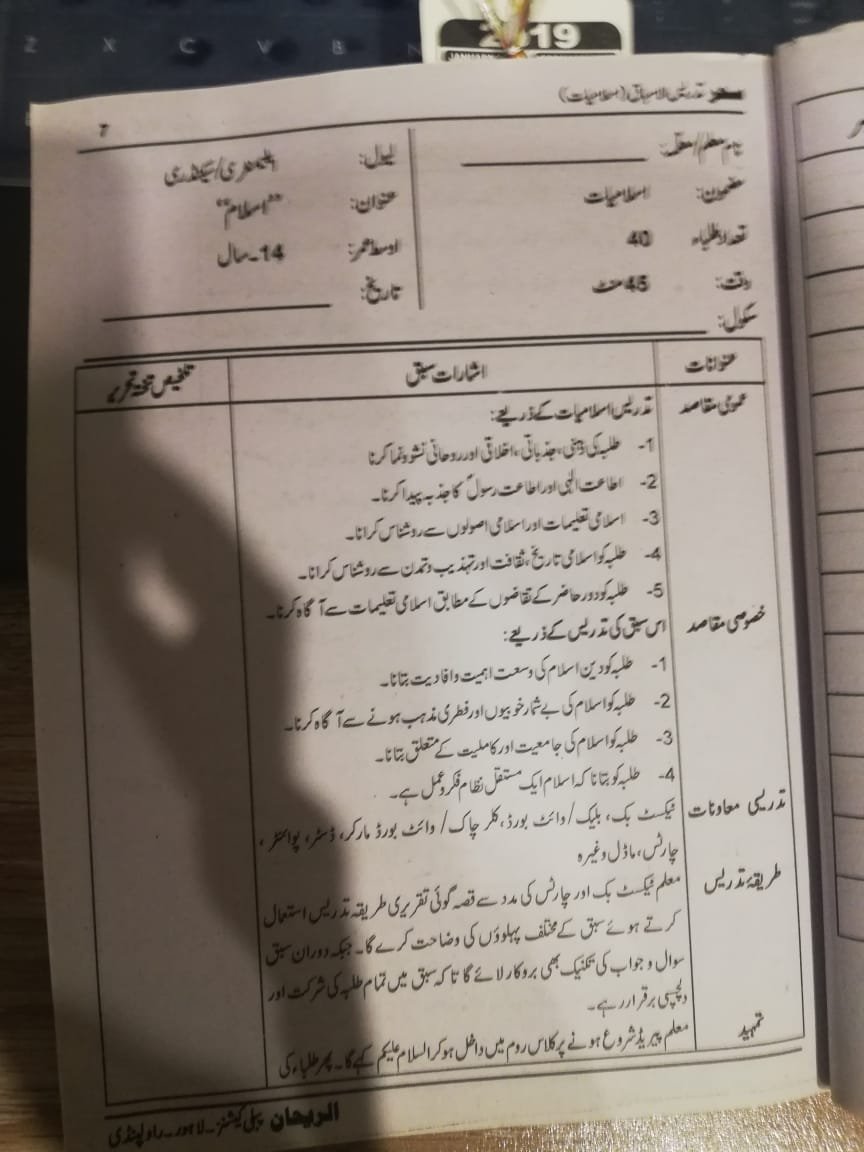 Z X C V B N
2019
JANUARY
تدریس الاسباق (اسلامیات)
7
نام معلم/معلمہ:
لیول: ایلیمنٹری/سیکنڈری
مضمون: اسلامیات
عنوان: "اسلام"
تعداد طلباء 40
اوسط عمر: 14۔سال
وقت: 45 منٹ
تاریخ:
سکول:
عنوانات
اشارات سبق
تلخیص تختہ تحریر
عمومی مقاصد
تدریس اسلامیات کے ذریعے:
1- طلبہ کی ذہنی، جذباتی، اخلاقی اور روحانی نشوونما کرنا
2- اطاعت الٰہی اور اطاعت رسولؐ کا جذبہ پیدا کرنا۔
3- اسلامی تعلیمات اور اسلامی اصولوں سے روشناس کرانا۔
4- طلبہ کو اسلامی تاریخ، ثقافت اور تہذیب و تمدن سے روشناس کرانا۔
5- طلبہ کو دور حاضر کے تقاضوں کے مطابق اسلامی تعلیمات سے آگاہ کرنا۔
خصوصی مقاصد
اس سبق کی تدریس کے ذریعے:
1- طلبہ کو دین اسلام کی وسعت اہمیت و افادیت بتانا۔
2- طلبہ کو اسلام کی بے شمار خوبیوں اور فطری مذہب ہونے سے آگاہ کرنا۔
3- طلبہ کو اسلام کی جامعیت اور کاملیت کے متعلق بتانا۔
4- طلبہ کو بتانا کہ اسلام ایک مستقل نظام فکر و عمل ہے۔
تدریسی معاونات
ٹیکسٹ بک، بلیک/وائٹ بورڈ، کلر چاک/وائٹ بورڈ مارکر، ڈسٹر، پوائنٹر،
چارٹس، ماڈل وغیرہ
طریقۂ تدریس
معلم ٹیکسٹ بک اور چارٹس کی مدد سے قصہ گوئی تقریری طریقہ تدریس استعمال
کرتے ہوئے سبق کے مختلف پہلوؤں کی وضاحت کرے گا۔ جبکہ دوران سبق
سوال و جواب کی تکنیک بھی بروکار لائے گا تاکہ سبق میں تمام طلبہ کی شرکت اور
دلچسپی برقرار رہے۔
تمہید
معلم پیریڈ شروع ہونے پر کلاس روم میں داخل ہو کر السلام علیکم کہے گا۔ پھر طلباء کی
الریحان پبلی کیشنز۔لاہور۔راولپنڈی